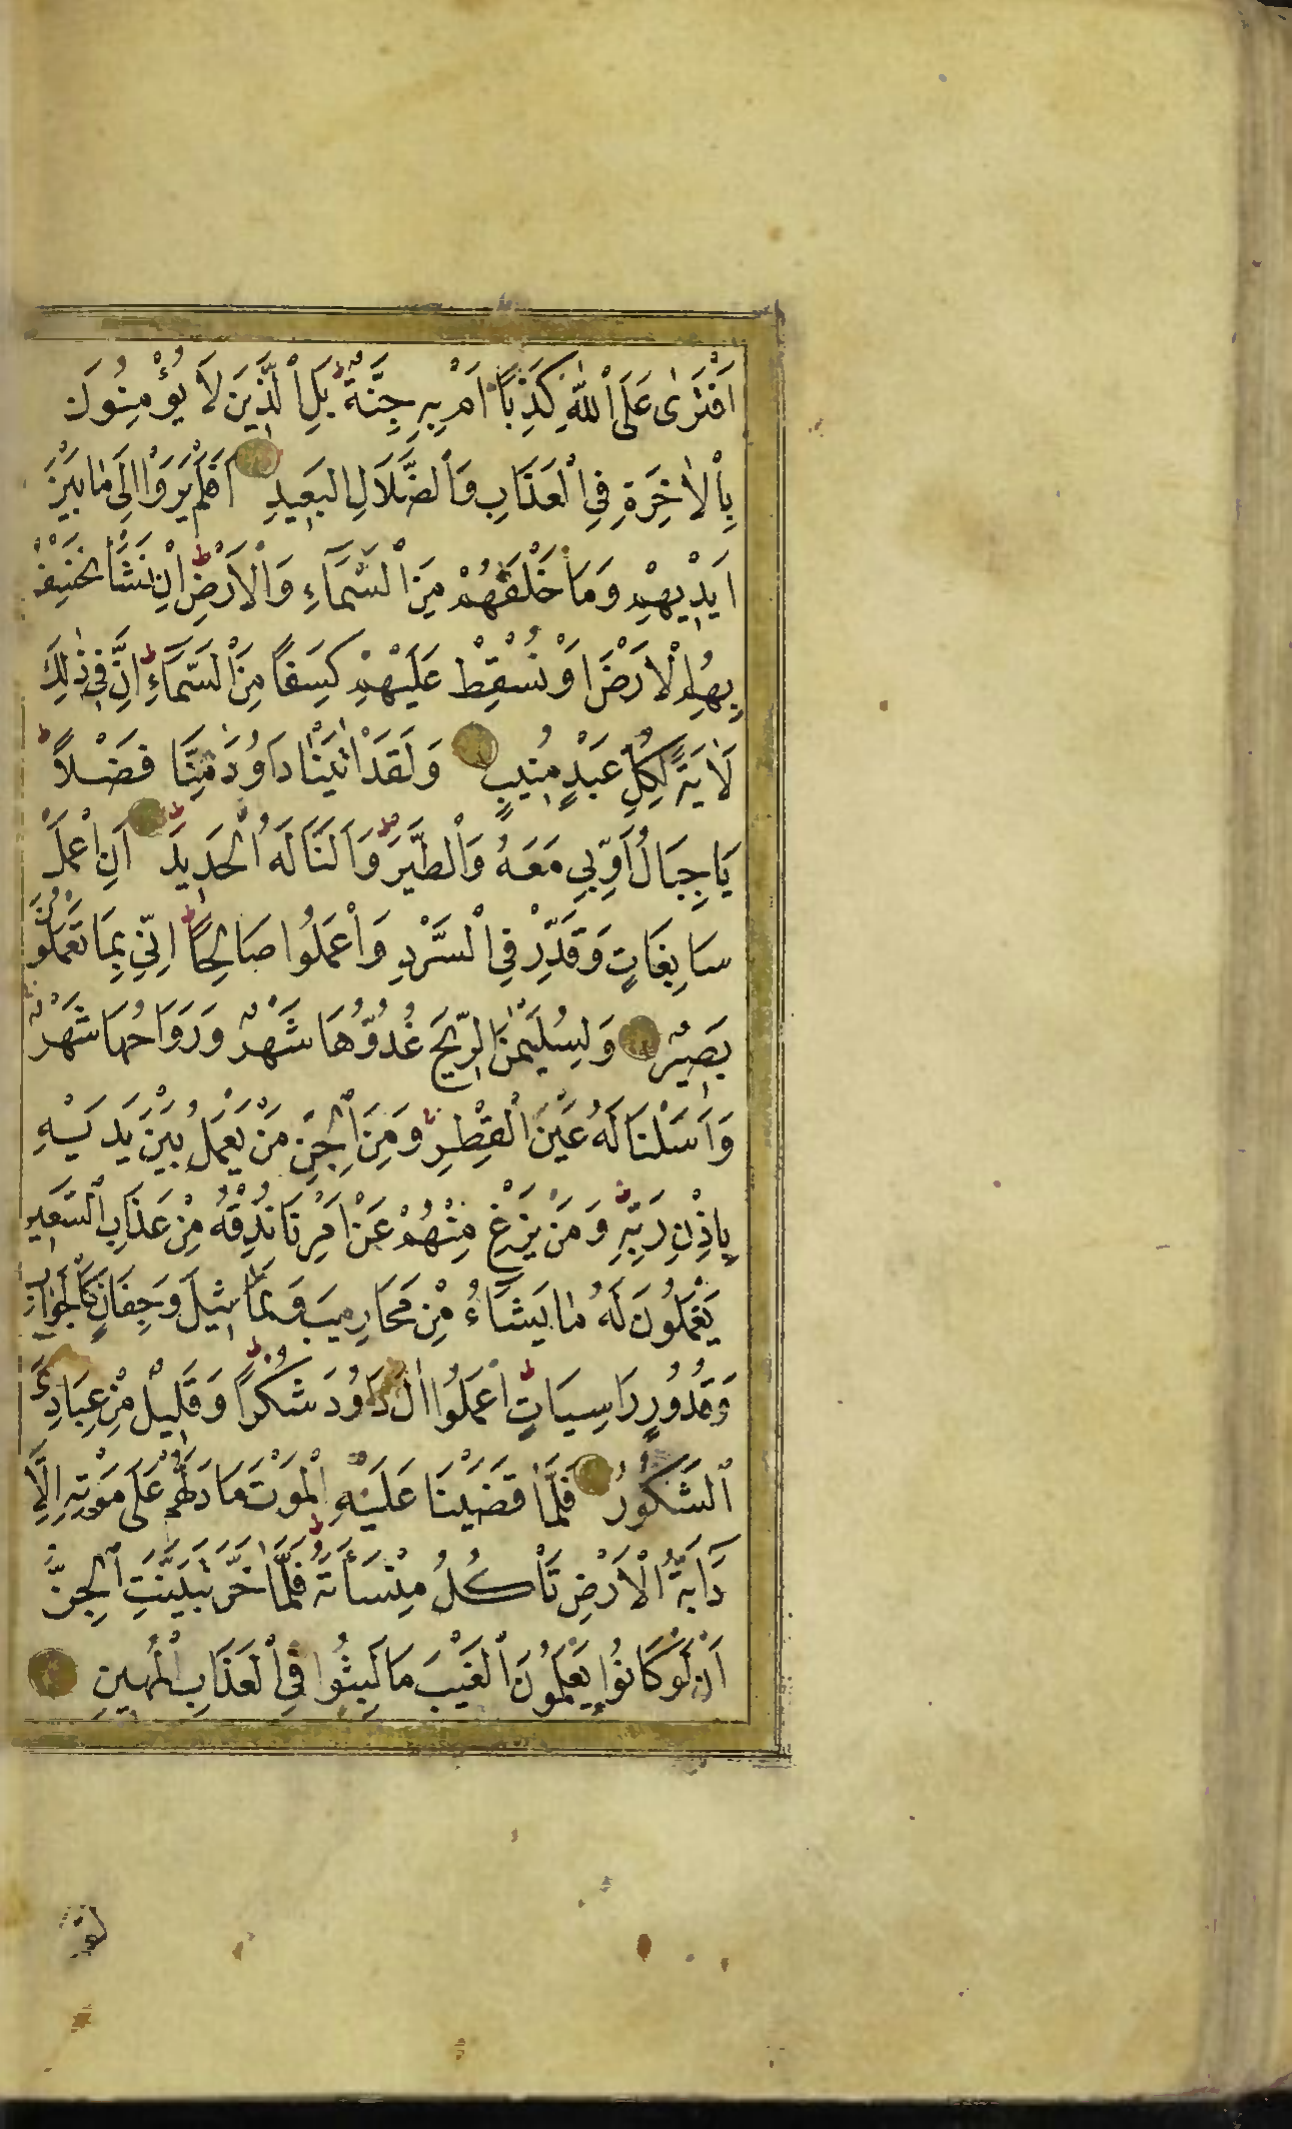 اَفْتَرٰى عَلَى اْللّٰهِ كَذِبًا اَمْ بِهِ جِنَّةٌ ط بَلِ اْلَّذِينَ لَا يُؤْمِنُونَ
بِاْلاٰخِرَةِ فِي اْلْعَذَابِ وَاْلضَّلَالِ الْبَعِيدِ اَفَلَمْ يَرَوْا اِلٰى مَا بَيْنَ
اَيْدِيهِمْ وَمَا خَلْفَهُمْ مِنَ اْلسَّمَآءِ وَالْاَرْضِ ط اِنْ نَشَأْ نَخْسِفْ
بِهِمُ الْاَرْضَ اَوْ نُسْقِطْ عَلَيْهِمْ كِسَفًا مِنَ اْلسَّمَآءِ ط اِنَّ فِي ذٰلِكَ
لَاٰيَةً لِكُلِّ عَبْدٍ مُنِيبٍ وَلَقَدْ اٰتَيْنَا دَاوُدَ مِنَّا فَضْلًا ط
يَا جِبَالُ اَوِّبِي مَعَهُ وَاْلطَّيْرَ ط وَاَلَنَّا لَهُ الْحَدِيدَ ط اَنِ اْعْمَلْ
سَابِغَاتٍ وَقَدِّرْ فِي اْلسَّرْدِ وَاْعْمَلُوا صَالِحًا ط اِنِّي بِمَا تَعْمَلُونَ
بَصِيرٌ وَلِسُلَيْمٰنَ الرِّيحَ غُدُوُّهَا شَهْرٌ وَرَوَاحُهَا شَهْرٌ
وَاَسَلْنَا لَهُ عَيْنَ اْلْقِطْرِ ط وَمِنَ الْجِنِّ مَنْ يَعْمَلُ بَيْنَ يَدَيْهِ
بِاِذْنِ رَبِّهِ ط وَمَنْ يَزِغْ مِنْهُمْ عَنْ اَمْرِنَا نُذِقْهُ مِنْ عَذَابِ اْلسَّعِيرِ
يَعْمَلُونَ لَهُ مَا يَشَآءُ مِنْ مَحَارِيبَ وَتَمَاثِيلَ وَجِفَانٍ كَالْجَوَابِ
وَقُدُورٍ رَاسِيَاتٍ ط اْعْمَلُوا اٰلَ دَاوُدَ شُكْرًا ط وَقَلِيلٌ مِنْ عِبَادِيَ
اْلشَّكُورُ فَلَمَّا قَضَيْنَا عَلَيْهِ الْمَوْتَ مَا دَلَّهُمْ عَلٰى مَوْتِهِ اِلَّا
دَآبَّةُ الْاَرْضِ تَاْكُلُ مِنْسَأَتَهُ ط فَلَمَّا خَرَّ تَبَيَّنَتِ اْلْجِنُّ
اَنْ لَوْ كَانُوا يَعْلَمُونَ اْلْغَيْبَ مَا لَبِثُوا فِي اْلْعَذَابِ الْمُهِينِ
لقد